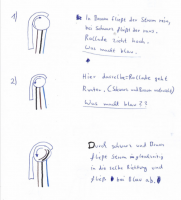 1)
In Braun fließt der Strom rein,
bei Schwarz fließt der raus.
Rollade zieht hoch.
Was macht blau.
2)
Hier dieselbe Rollade geht
Runter. (Schwarz und Braun umgekehrt)
Was macht blau??
Durch schwarz und Braun
fließt Strom
in die selbe Richtung und
fließt bei Blau ab.